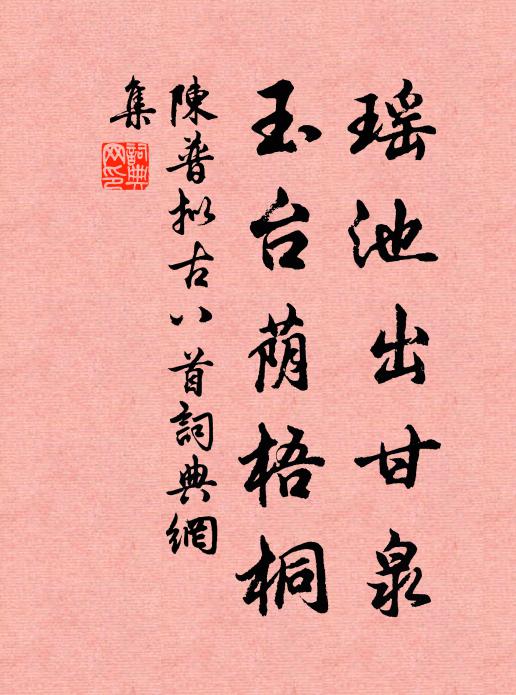 瑶池出甘泉
玉台荫梧桐
陳普拟古八首詞典網
集
詞典网印